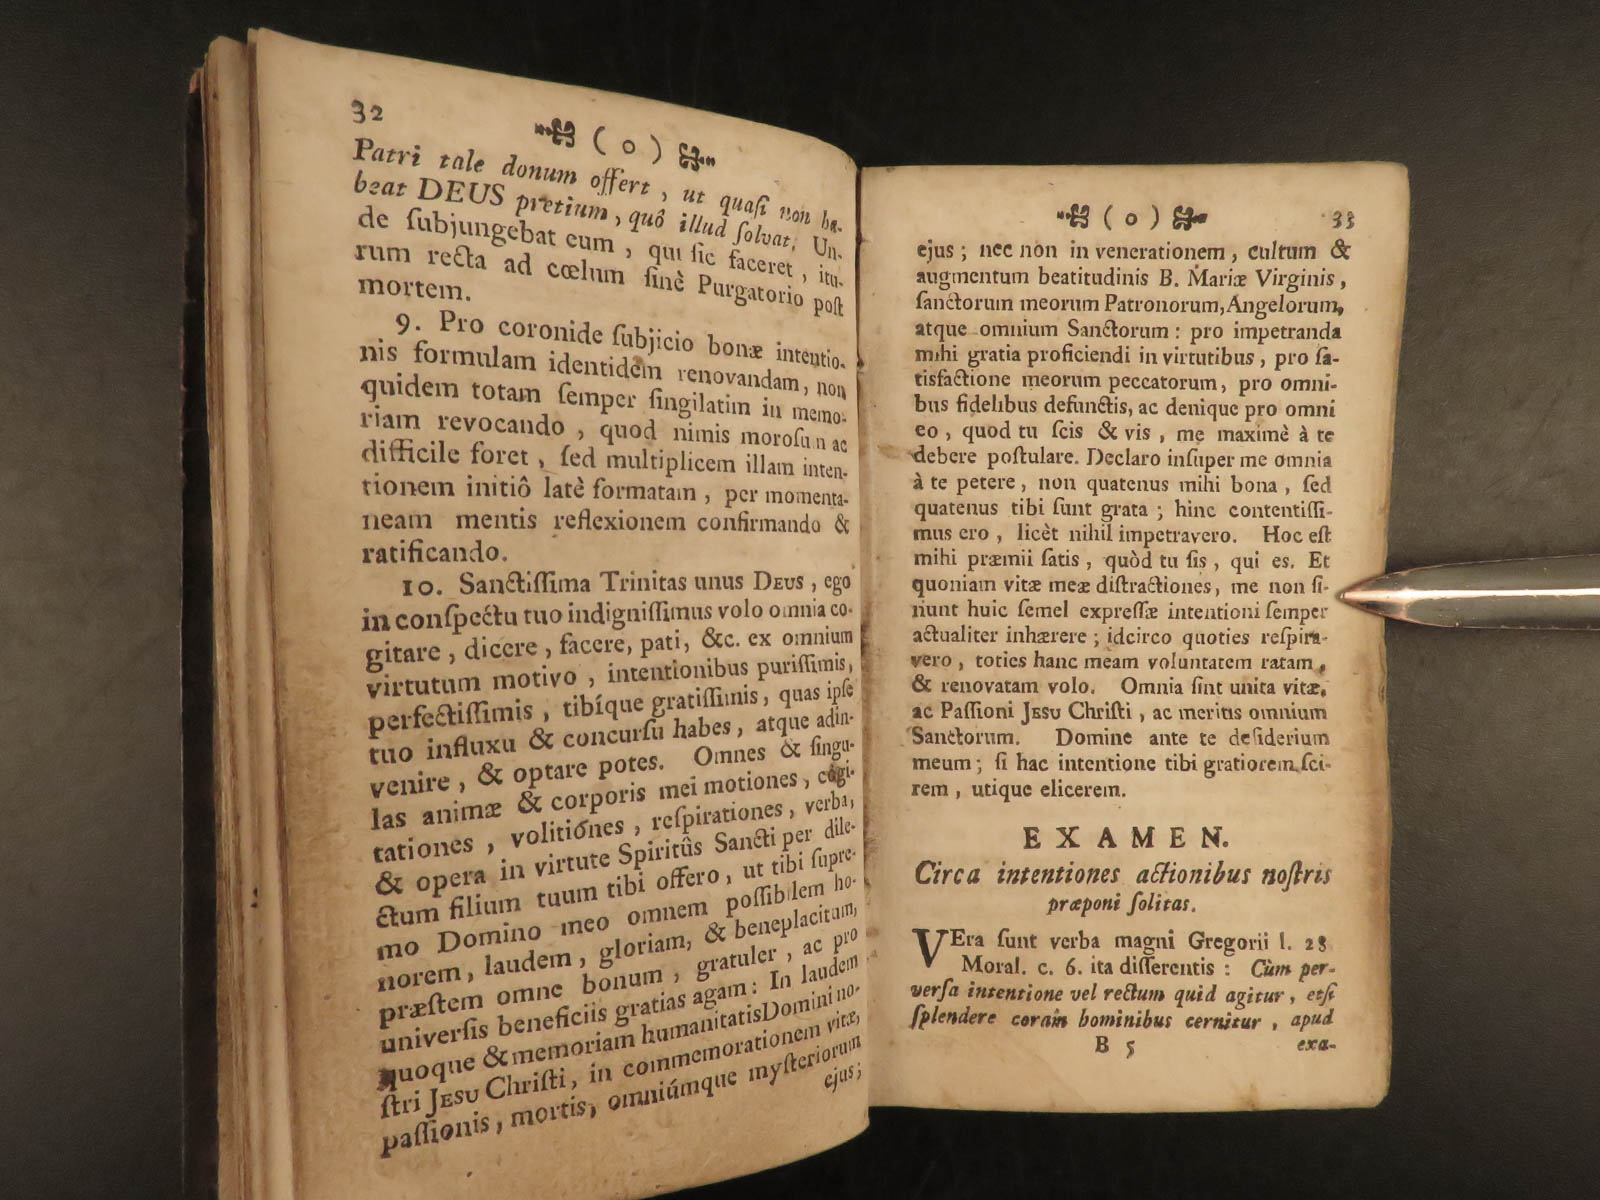 32
( o )
Patri tale donum offert, ut quaſi non ha-
beat DEUS pretium, quô illud ſolvat. Un-
de ſubjungebat eum, qui ſic faceret, itu-
rum recta ad cœlum ſinè Purgatorio poſt
mortem.
9. Pro coronide ſubjicio bonæ intentio-
nis formulam identidèm renovandam, non
quidem totam ſemper ſingilatim in memo-
riam revocando, quod nimis moroſum ac
difficile foret, ſed multiplicem illam inten-
tionem initiô latè formatam, per momenta-
neam mentis reflexionem confirmando &
ratificando.
10. Sanctiſſima Trinitas unus DEUS, ego
in conſpectu tuo indigniſſimus volo omnia co-
gitare, dicere, facere, pati, &c. ex omnium
virtutum motivo, intentionibus puriſſimis,
perfectiſſimis, tibíque gratiſſimis, quas ipſe
tuo influxu & concurſu habes, atque adin-
venire, & optare potes. Omnes & ſingu-
las animæ & corporis mei motiones, cogi-
tationes, volitiónes, reſpirationes, verba,
& opera in virtute Spiritûs Sancti per dile-
ctum filium tuum tibi offero, ut tibi ſupre-
mo Domino meo omnem poſſibilem ho-
norem, laudem, gloriam, & beneplacitum,
præſtem omne bonum, gratuler, ac pro
univerſis beneficiis gratias agam: In laudem
quoque & memoriam humanitatis Domini no-
ſtri JESU Chriſti, in commemorationem vitæ,
paſſionis, mortis, omniúmque myſteriorum
ejus;
( o ) 33
ejus; nec non in venerationem, cultum &
augmentum beatitudinis B. Mariæ Virginis,
ſanctorum meorum Patronorum, Angelorum,
atque omnium Sanctorum: pro impetranda
mihi gratia proficiendi in virtutibus, pro ſa-
tisfactione meorum peccatorum, pro omni-
bus fidelibus defunctis, ac denique pro omni
eo, quod tu ſcis & vis, me maximè à te
debere poſtulare. Declaro inſuper me omnia
à te petere, non quatenus mihi bona, ſed
quatenus tibi ſunt grata; hinc contentiſſi-
mus ero, licèt nihil impetravero. Hoc eſt
mihi præmii ſatis, quòd tu ſis, qui es. Et
quoniam vitæ meæ diſtractiones, me non ſi-
niunt huic ſemel expreſſæ intentioni ſemper
actualiter inhærere; idcirco quoties reſpira-
vero, toties hanc meam voluntatem ratam,
& renovatam volo. Omnia ſint unita vitæ,
ac Paſſioni JESU Chriſti, ac meritis omnium
Sanctorum. Domine ante te deſiderium
meum; ſi hac intentione tibi gratiorem ſci-
rem, utique elicerem.
EXAMEN.
Circa intentiones actionibus noſtris
præponi ſolitas.
VEra ſunt verba magni Gregorii l. 28
Moral. c. 6. ita diſſerentis: Cùm per-
verſa intentione vel rectum quid agitur, etſi
ſplendere coràm hominibus cernitur, apud
B 5 exa-